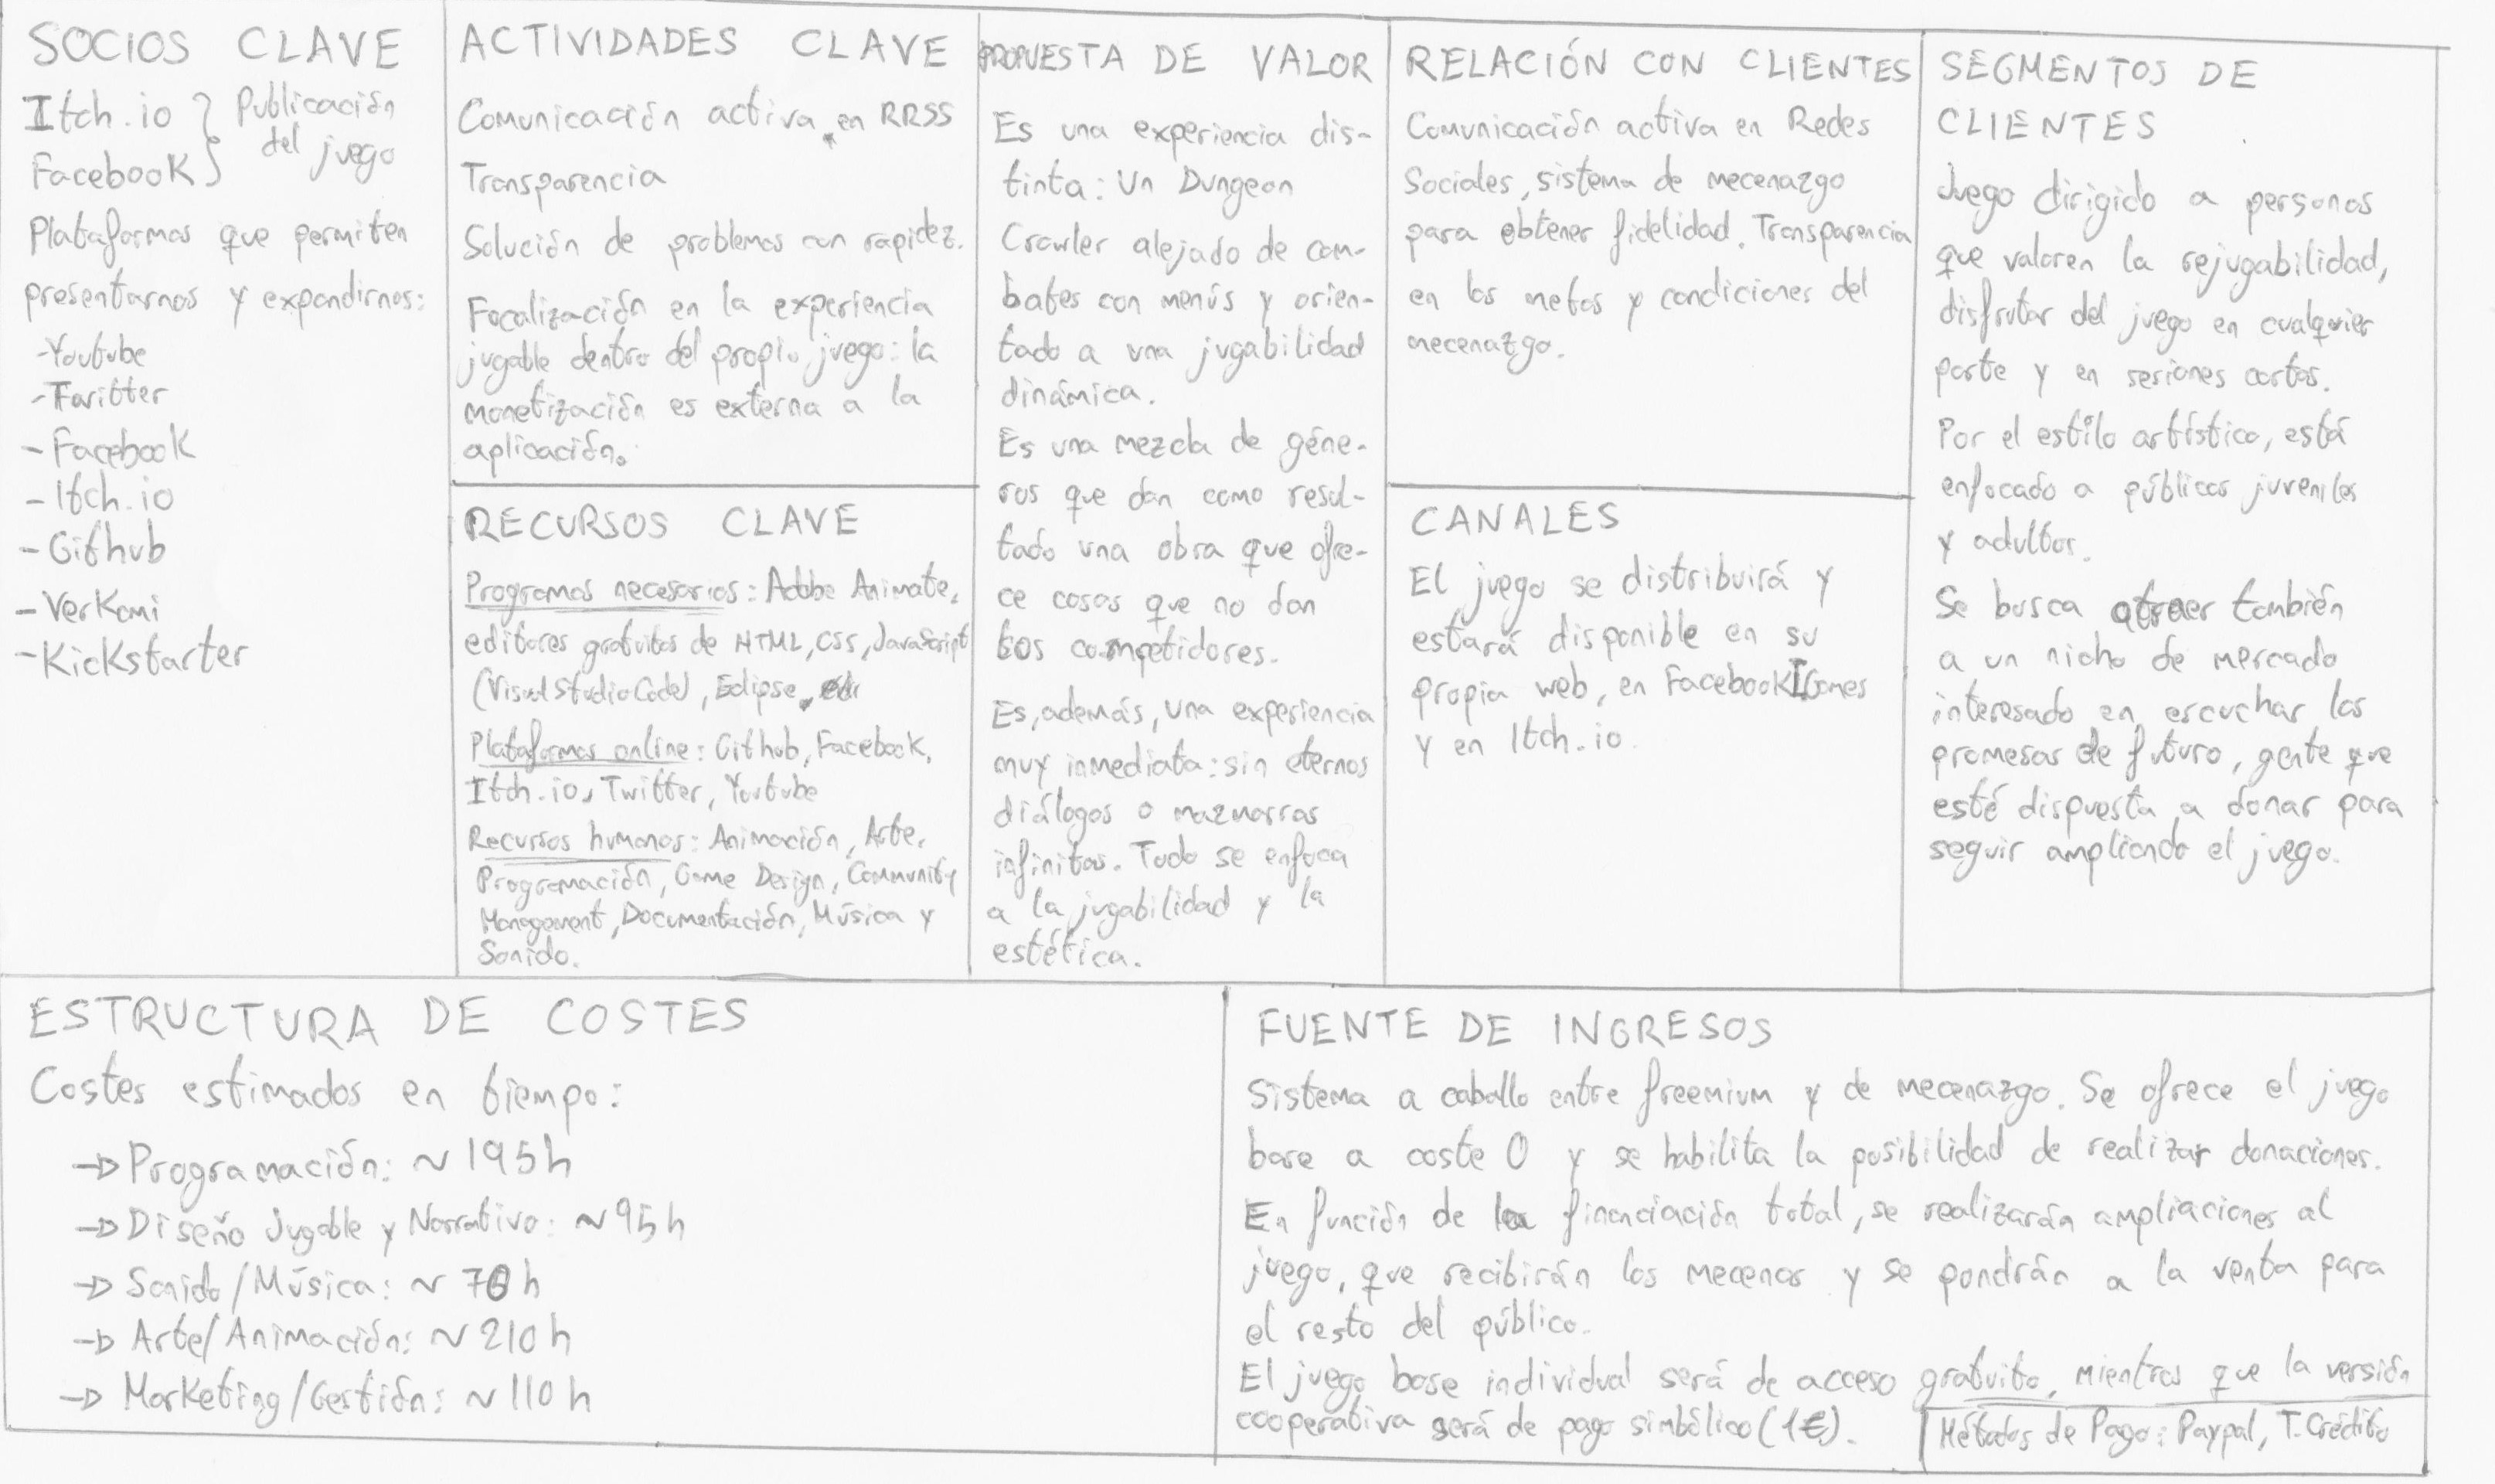 SOCIOS CLAVE
Itch.io } Publicación
Facebook } del juego
Plataformas que permiten
presentarnos y expandirnos:
-Youtube
-Twitter
-Facebook
-Itch.io
-Github
-Verkami
-Kickstarter
ACTIVIDADES CLAVE
Comunicación activa en RRSS
Transparencia
Solución de problemas con rapidez.
Focalización en la experiencia
jugable dentro del propio juego: la
monetización es externa a la
aplicación.
RECURSOS CLAVE
Programas necesarios: Adobe Animate,
editores gratuitos de HTML, CSS, JavaScript
(Visual Studio Code), Eclipse,
Plataformas online: Github, Facebook,
Itch.io, Twitter, Youtube
Recursos humanos: Animación, Arte,
Programación, Game Design, Community
Management, Documentación, Música y
Sonido.
PROPUESTA DE VALOR
Es una experiencia dis-
tinta: Un Dungeon
Crawler alejado de com-
bates con menús y orien-
tado a una jugabilidad
dinámica.
Es una mezcla de géne-
ros que dan como resul-
tado una obra que ofre-
ce cosas que no dan
los competidores.
Es, además, una experiencia
muy inmediata: sin eternos
diálogos o mazmorras
infinitas. Todo se enfoca
a la jugabilidad y la
estética.
RELACIÓN CON CLIENTES
Comunicación activa en Redes
Sociales, sistema de mecenazgo
para obtener fidelidad. Transparencia
en las metas y condiciones del
mecenazgo.
CANALES
El juego se distribuirá y
estará disponible en su
propia web, en Facebook IGames
y en Itch.io.
SEGMENTOS DE
CLIENTES
Juego dirigido a personas
que valoren la rejugabilidad,
disfrutar del juego en cualquier
parte y en sesiones cortas.
Por el estilo artístico, está
enfocado a públicos juveniles
y adultos.
Se busca atraer también
a un nicho de mercado
interesado en escuchar las
promesas de futuro, gente que
esté dispuesta a donar para
seguir ampliando el juego.
ESTRUCTURA DE COSTES
Costes estimados en tiempo:
→ Programación: ~ 195h
→ Diseño Jugable y Narrativo: ~ 95h
→ Sonido/Música: ~ 70h
→ Arte/Animación: ~ 210h
→ Marketing/Gestión: ~ 110h
FUENTE DE INGRESOS
Sistema a caballo entre freemium y de mecenazgo. Se ofrece el juego
base a coste 0 y se habilita la posibilidad de realizar donaciones.
En función de la financiación total, se realizarán ampliaciones al
juego, que recibirán los mecenas y se pondrán a la venta para
el resto del público.
El juego base individual será de acceso gratuito, mientras que la versión
cooperativa será de pago simbólico (1€).
Métodos de Pago: Paypal, T. Crédito